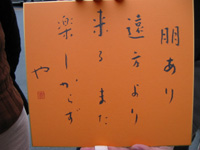 朋あり
遠方より
来るまた
楽しからず
や